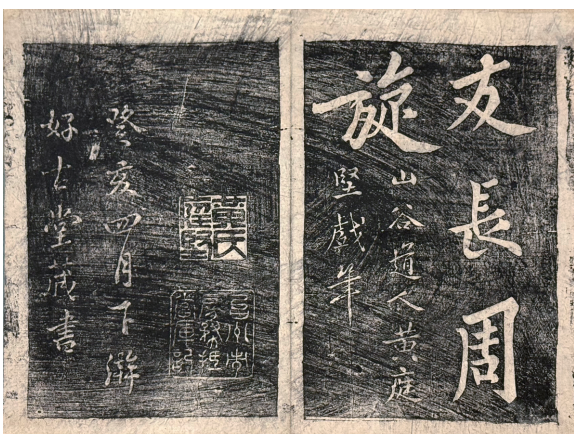 友長周
旋
山谷道人黄庭
堅戲筆
黄氏
庭堅
癸亥四月下澣
好古堂藏書